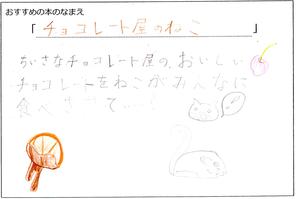 おすすめの本のなまえ
「チョコレート屋のねこ」
ちいさなチョコレート屋の、おいしい
チョコレートをねこがみんなに
食べさせて…!